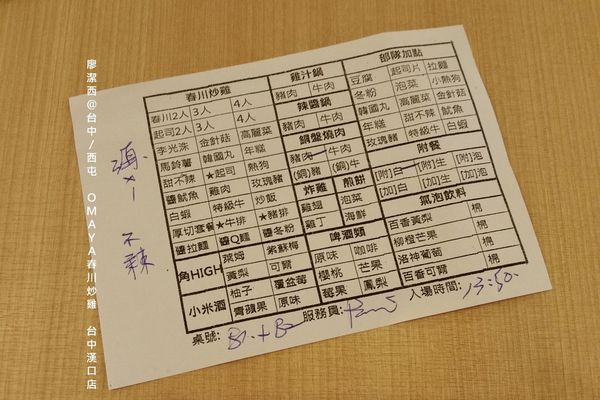 廖潔西@台中/西屯 OMAYA春川炒雞 台中漢口店
不辣
春川炒雞
春川2人 3人 4人
起司2人 3人 4人
李光洙 金針菇 高麗菜
馬鈴薯 韓國丸 年糕
甜不辣 ★起司 熱狗
醬魷魚 雞肉 玫瑰豬
白蝦 特級牛 炒飯
厚切套餐 ★牛排 ★豬排
醬拉麵 醬Q麵 醬冬粉
角HIGH 萊姆 紫蘇梅
黃梨 可爾
小米酒 柚子 覆盆莓
青蘋果 原味
雞汁鍋
豬肉 牛肉
辣醬鍋
豬肉 牛肉
銅盤燒肉
豬肉 牛肉
(銅)豬 (銅)牛
炸雞 煎餅
雞翅 泡菜
雞丁 海鮮
啤酒類
原味 咖啡
櫻桃 芒果
莓果 鳳梨
部隊加點
豆腐 起司片 拉麵
冬粉 泡菜 小熱狗
韓國丸 高麗菜 金針菇
年糕 甜不辣 魷魚
豬肉 特級牛 白蝦
附餐
[附]白 [附]生 [附]泡
[加]白 [加]生 [加]泡
氣泡飲料
百香黃梨 棉
柳橙芒果 棉
洛神葡萄 棉
百香可爾 棉
桌號: B1+B2 服務員: 入場時間: 13:50